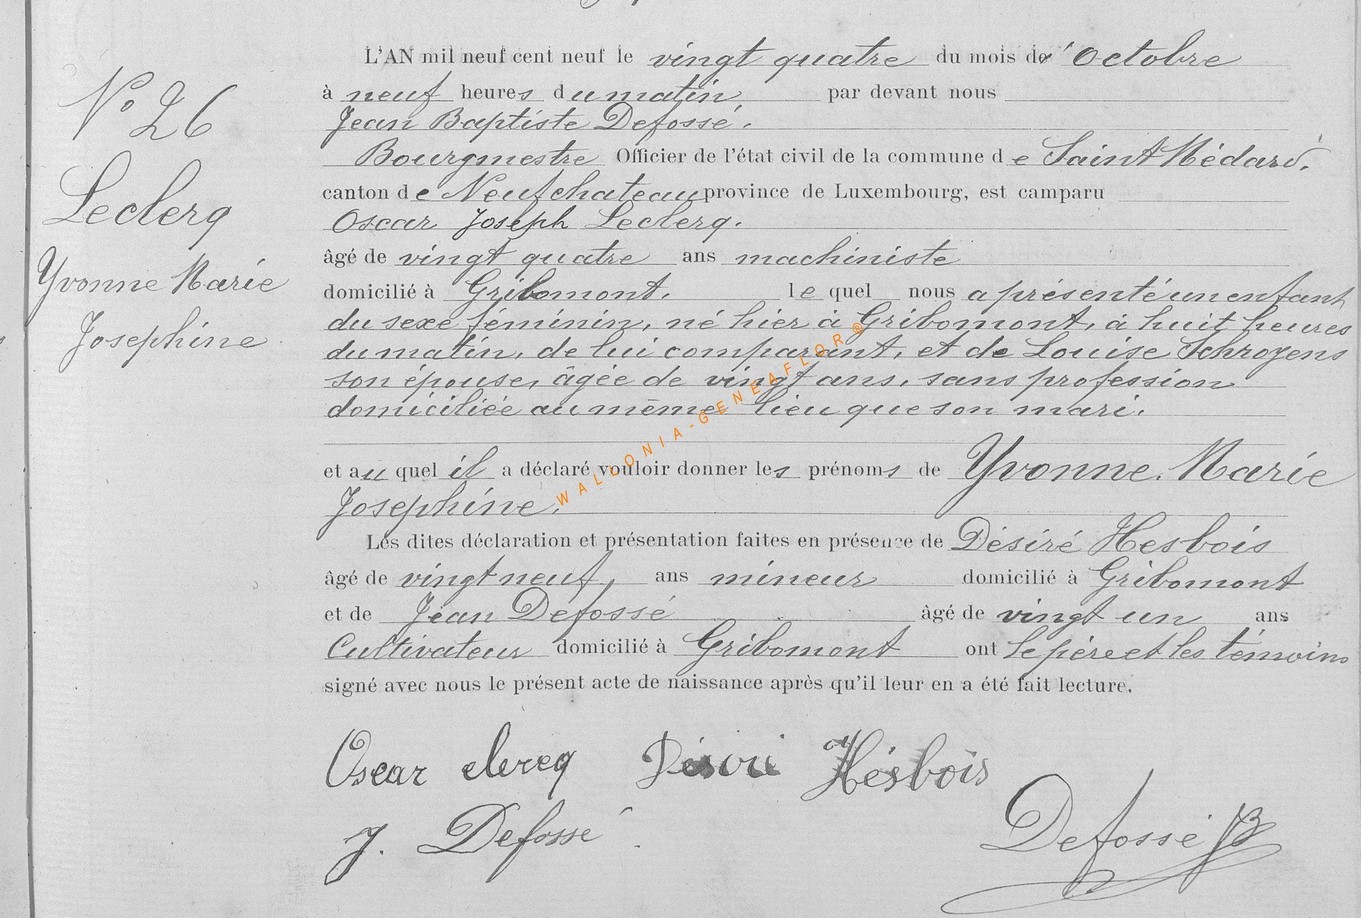 N° 26
Leclerq
Yvonne Marie
Josephine
L'AN mil neuf cent neuf le vingt quatre du mois de Octobre
à neuf heures du matin par devant nous
Jean Baptiste Defossé.
Bourgmestre Officier de l'état civil de la commune de Saint Médard.
canton de Neufchateau province de Luxembourg, est camparu
Oscar Joseph Leclerq.
âgé de vingt quatre ans machiniste
domicilié à Gribomont. le quel nous a présenté un enfant
du sexe féminin, né hier à Gribomont, à huit heures
du matin, de lui comparant, et de Louise Schroyens
son épouse, âgée de vingt ans, sans profession
domiciliée au même lieu que son mari.
et au quel il a déclaré vouloir donner les prénoms de Yvonne. Marie
Josephine.
Les dites déclaration et présentation faites en présence de Désiré Hesbois
âgé de vingt neuf, ans mineur domicilié à Gribomont
et de Jean Defossé âgé de vingt un ans
Cultivateur domicilié à Gribomont ont le père et les témoins
signé avec nous le présent acte de naissance après qu'il leur en a été fait lecture.
Oscar clercq Désiré Hésbois
J. Defossé
Defossé JB
WALLONIA-GENEAFLOR®